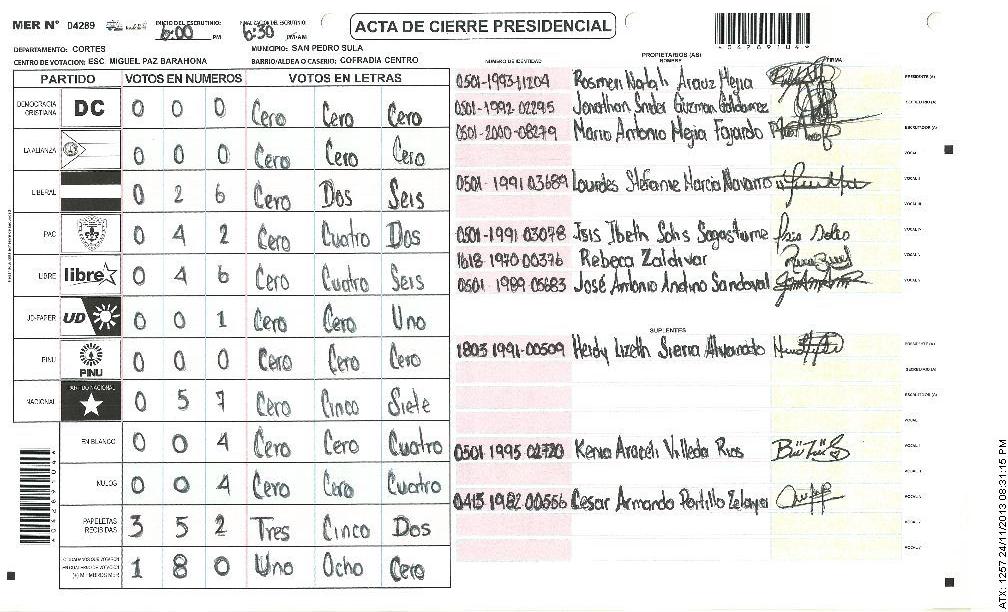 MER Nº 04289
INICIO DEL ESCRUTINIO: 6:00 PM
FINALIZACION DEL ESCRUTINIO: 6:30 PM-AM
ACTA DE CIERRE PRESIDENCIAL
DEPARTAMENTO: CORTES
MUNICIPIO: SAN PEDRO SULA
CENTRO DE VOTACION: ESC MIGUEL PAZ BARAHONA
BARRIO/ALDEA O CASERIO: COFRADIA CENTRO
PARTIDO VOTOS EN NUMEROS VOTOS EN LETRAS
DEMOCRACIA CRISTIANA DC 0 0 0 Cero Cero Cero
LA ALIANZA 0 0 0 Cero Cero Cero
LIBERAL 0 2 6 Cero Dos Seis
PAC 0 4 2 Cero Cuatro Dos
LIBRE libre 0 4 6 Cero Cuatro Seis
UD-FAPER UD 0 0 1 Cero Cero Uno
PINU PINU 0 0 0 Cero Cero Cero
NACIONAL PARTIDO NACIONAL 0 5 7 Cero Cinco Siete
EN BLANCO 0 0 4 Cero Cero Cuatro
NULOS 0 0 4 Cero Cero Cuatro
PAPELETAS RECIBIDAS 3 5 2 Tres Cinco Dos
CIUDADANOS QUE VOTARON EN CUADERNO DE VOTACION (+) MIEMBROS MER 1 8 0 Uno Ocho Cero
PROPIETARIOS (AS)
NUMERO DE IDENTIDAD NOMBRE FIRMA
0501-1993-11204 Rosmeri Natali Araoz Mejia PRESIDENTE (A)
0501-1992-02295 Jonathan Snider Guzman Galdamez SECRETARIO (A)
0501-2000-08279 Mario Antonio Mejia Fajardo ESCRUTADOR (A)
VOCAL I
0501-1991 03689 Lourdes Stefanie Marcia Navarro VOCAL II
VOCAL III
0501-1991-03078 Isis Ibeth Solis Sagastume VOCAL IV
1618 1970 00376 Rebeca Zaldivar VOCAL V
0501 1989 05683 José Antonio Andino Sandoval
SUPLENTES
1803 1991-00509 Heidy Lizeth Sierra Alvarado PRESIDENTE (A)
SECRETARIO (A)
ESCRUTADOR (A)
VOCAL
0501 1995 02720 Kenia Araceli Villeda Rios VOCAL
0413 1982 00556 Cesar Armando Portillo Zelaya VOCAL
ATX: 1257 24/11/2013 08:31:15 PM